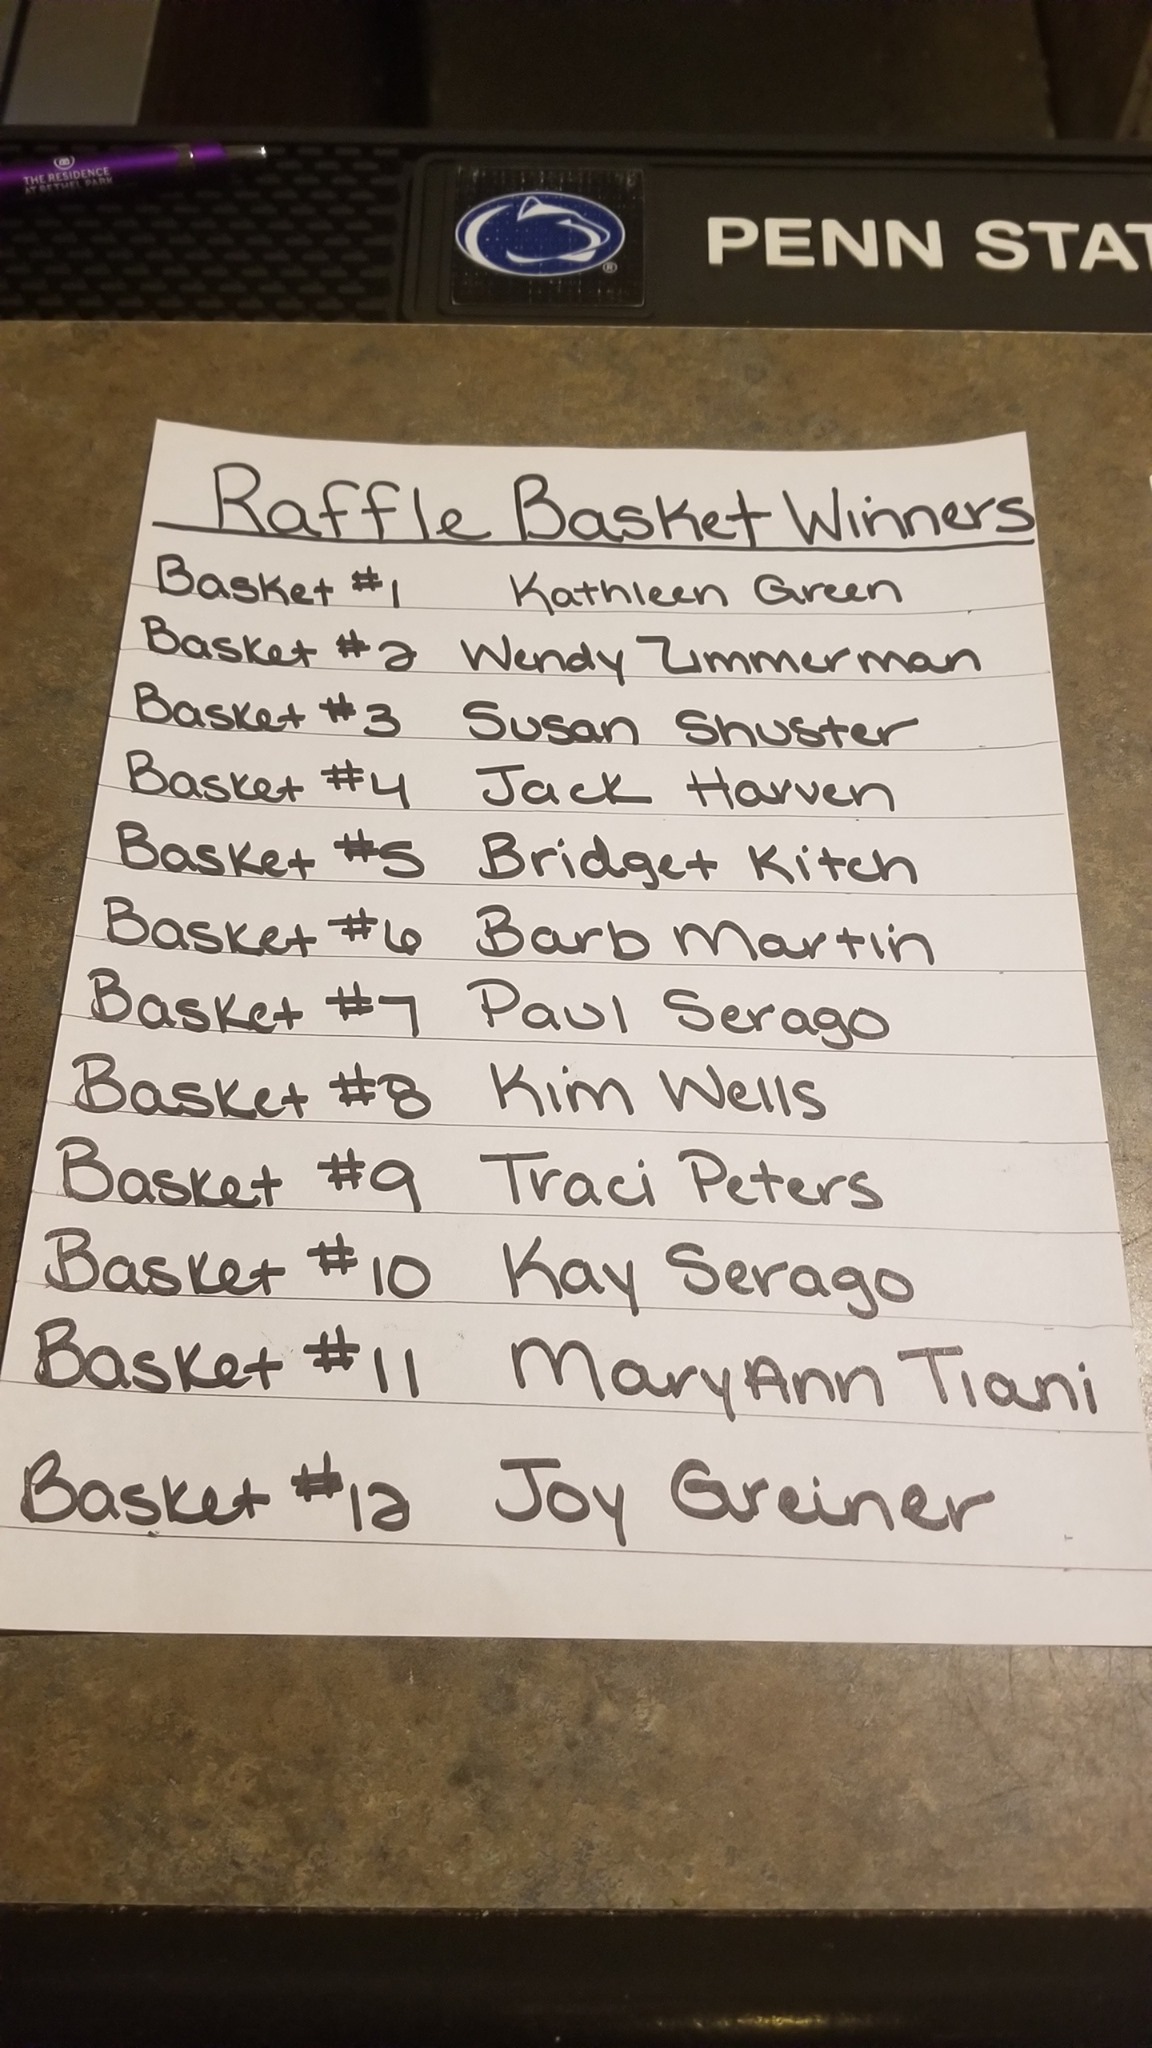 THE RESIDENCE
AT BETHEL PARK
PENN STAT
Raffle Basket Winners
Basket #1 Kathleen Green
Basket #2 Wendy Zimmerman
Basket #3 Susan Shuster
Basket #4 Jack Harven
Basket #5 Bridget Kitch
Basket #6 Barb Martin
Basket #7 Paul Serago
Basket #8 Kim Wells
Basket #9 Traci Peters
Basket #10 Kay Serago
Basket #11 MaryAnn Tiani
Basket #12 Joy Greiner